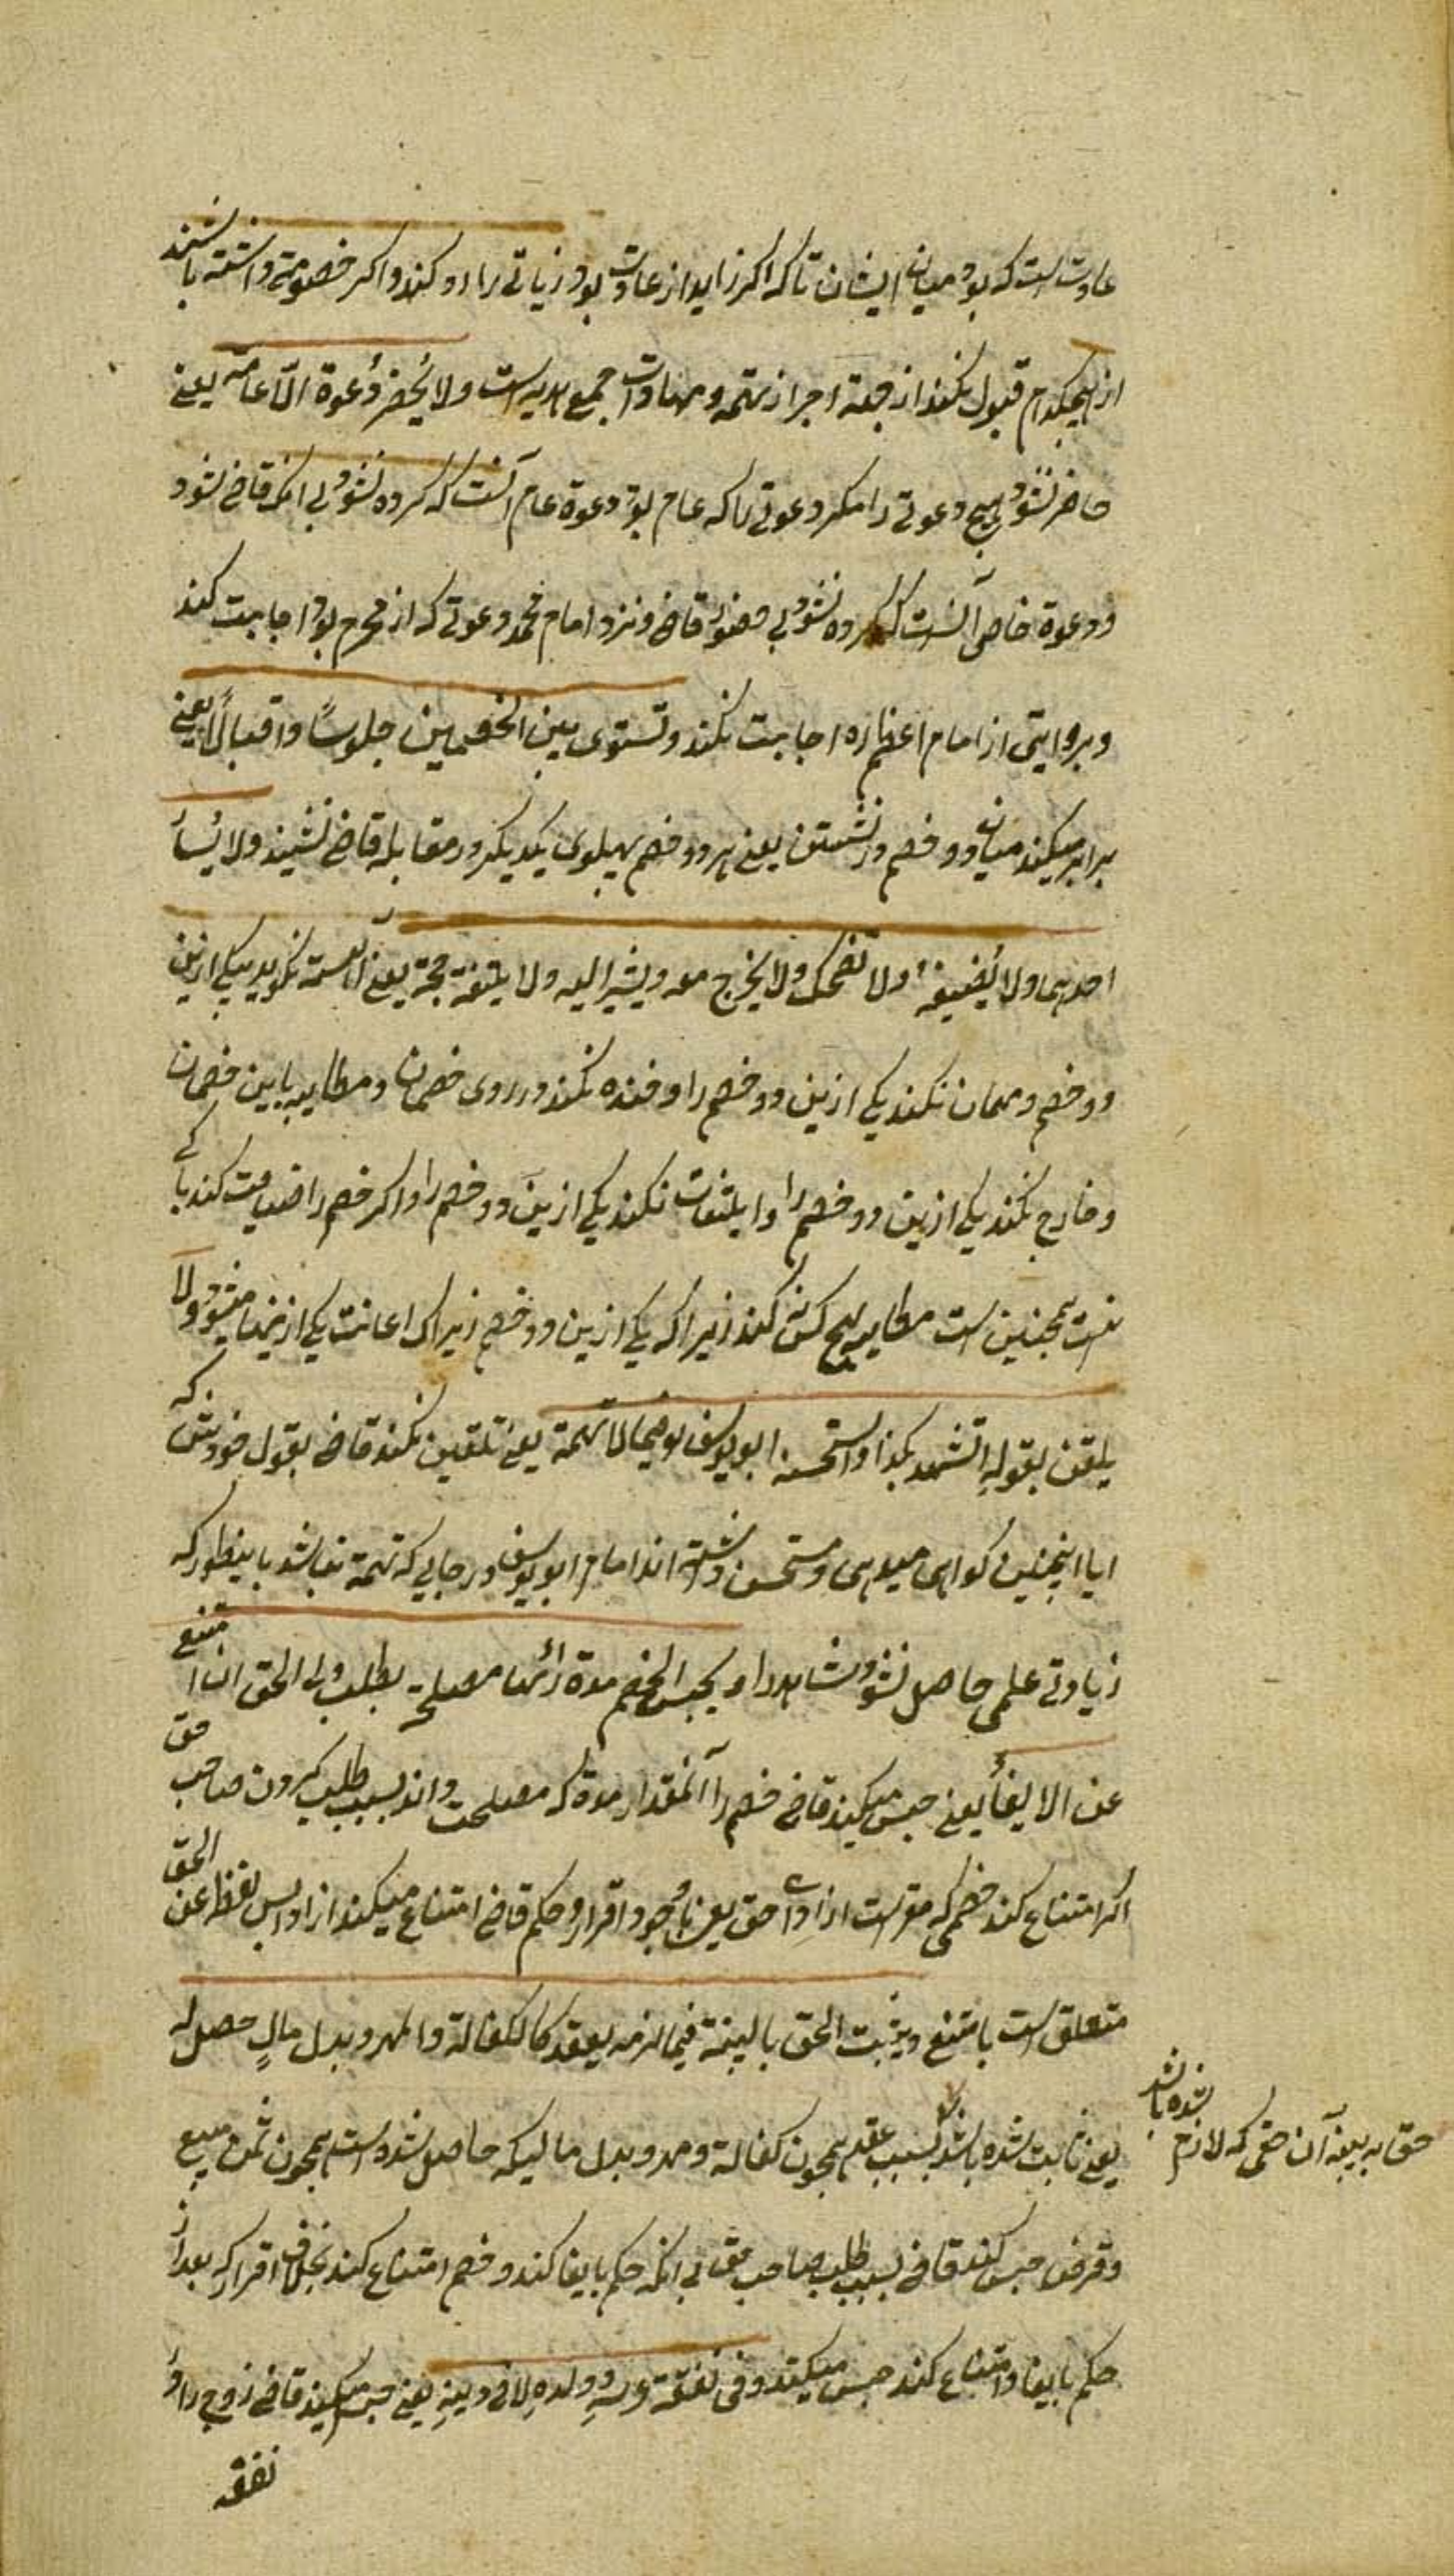 عادت است که بود میان ایشان تا که اکر زاید از عادت بود زیاتی را رد کند و اکر خصومة داشته باشند
از هیچکدام قبول نکند از جهة احراز تهمه و مهادات جمع هدیه است ولا یُحضر دُعوة الّا عامة یعنے
حاضر نشود هیچ دعوتی را مکر دعوتی را که عام بود دعوة عام آنست که کرده نشود بی انکه قاضے شود
و دعوة خاص آنست که کرده نشود بی حضور قاضے و نزد امام محمد دعوتی که از محرم بود اجابت کند
و بروایتی از امام اعظم ره اجابت نکند و تستوی بین الخصمین جلوساً و اقبالاً یعنے
برابر میکند میان دو خصم در نشستن یعنے هر دو خصم بهلوی یکدیکر در مقابله قاضے نشیند ولا یُسارّ
احدهما ولا یُضیفه ولا تضحک ولا یخرج معه و یشیر الیه ولا یلقنه حجة یعنے آهسته نکوید بیکی ازین
دو خصم و مهمان نکند یکی ازین دو خصم را و خنده نکند در روی خصمان و مطایبه باین خصمان
و خارج نکند یکی ازین دو خصم را و ایلتفات نکند یکی ازین دو خصم را و اکر خصم را ضیافت کند باکی
نیست همچنین است مطایبه هیچ کس نکند زیرا که یکی ازین دو خصم زیراکی اعانت یکی ازینها میشود ولا
یلقن بقولهِ اتشهد بکذا و استحسنه ابو یوسف فیما لا تهمة یعنے تلقین نکند قاضے بقول خودیش که
ایا اینچنین کواهی میدهی و مستحسن داشته اند امام ابو یوسف در جایی که تهمة نباشد باینطور که
زیادتی علمی حاصل نشود شاهد را و یحبس الخصم مدة رأئها مصلحة بطلب ولی الحق ان امتنع
عن الایفأ یعنے حبس میکند قاضے خصم را آنمقدار مدة که مصلحت داند بسبب طلب کردن صاحب حق
اکر امتناع کند خصمی که مقر است از ادای حق یعنے باوجود اقرار و حکم قاضے امتناع میکند از او بس لفظ عن الحق
متعلق است بامتنع و یثبت الحق بالبینة فیما لزمه بعقد کالکفالة والمهر و بدل مالٍ حصل له
یعنے ثابت شده باشد بسبب عقد همچون کفالة و مهر و بدل مالیکه حاصل شده است همچون ثمن مبیع
حق به بینه آن حقی که لازم شده باشد
و قرض حبس کند قاضے بسبب طلب صاحب حق بی انکه حکم بایفا کند و خصم امتناع کند بخلاف اقرار که بعد از
حکم بایفا و امتناع کند حبس میکند و فی نفقة عرسهِ و ولدهِ لا فی دینهِ یعنے حبس میکند قاضے زوج را و
نفقه